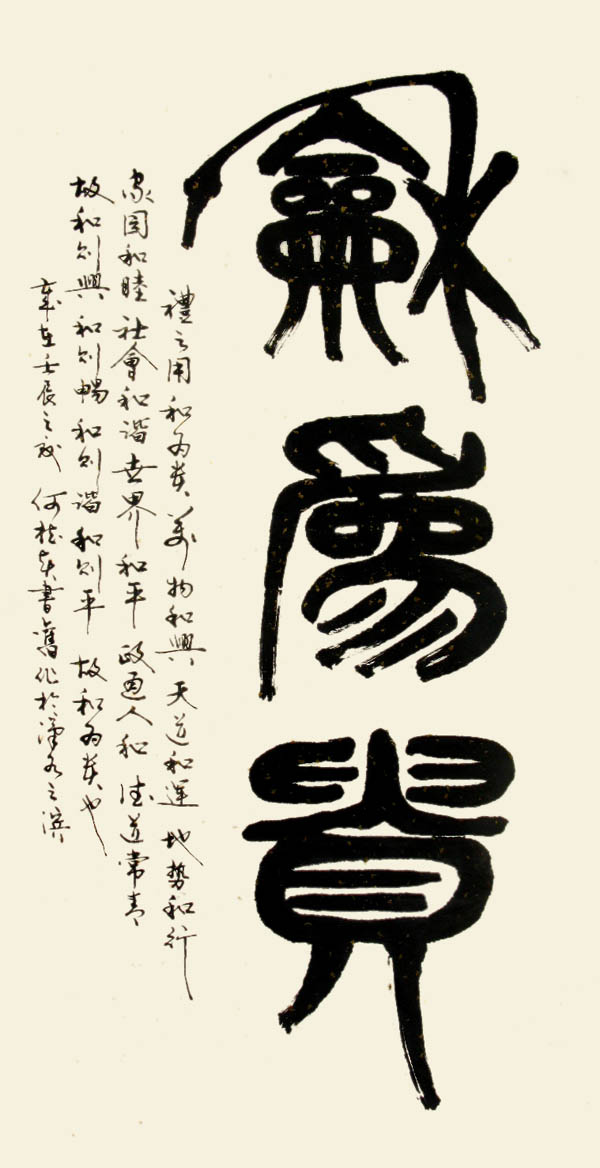 龢為貴
禮之用和為貴萬物和興天道和運地勢和行
家国和睦社會和諧世界和平政通人和德道常青
故和則興和則暢和則諧和則平故和為貴也
歲在壬辰之秋何書舊作於漢水之濱